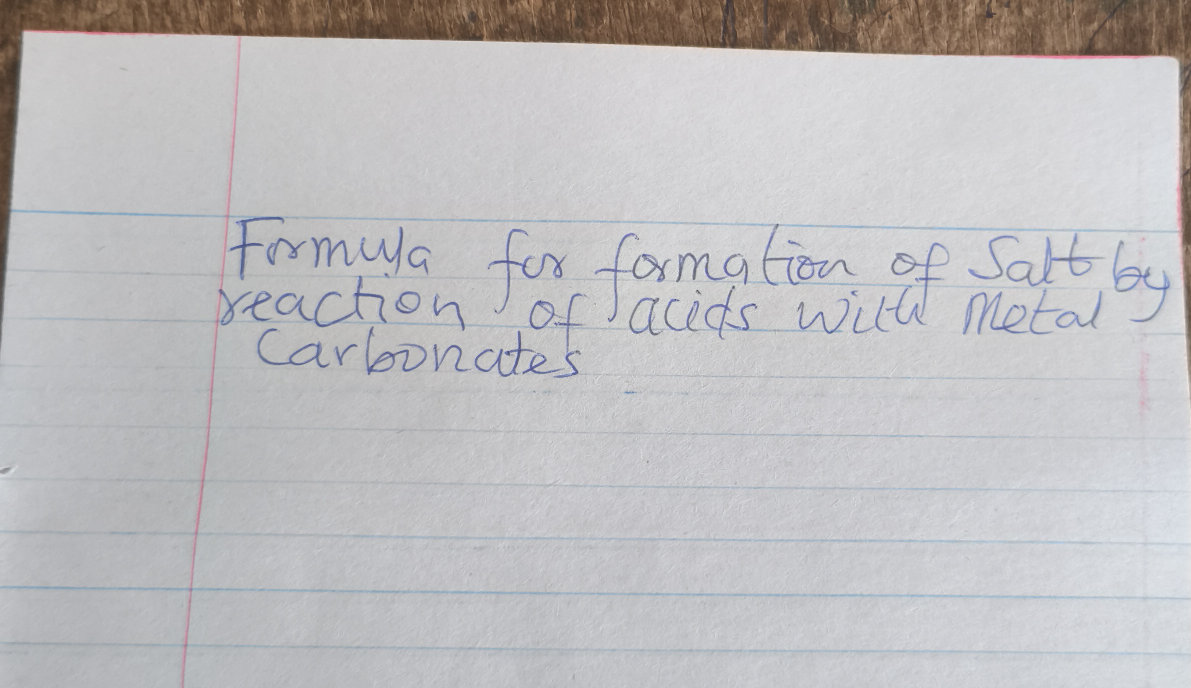 Formula for formation of Salt by
reaction of acids with Metal
Carbonates